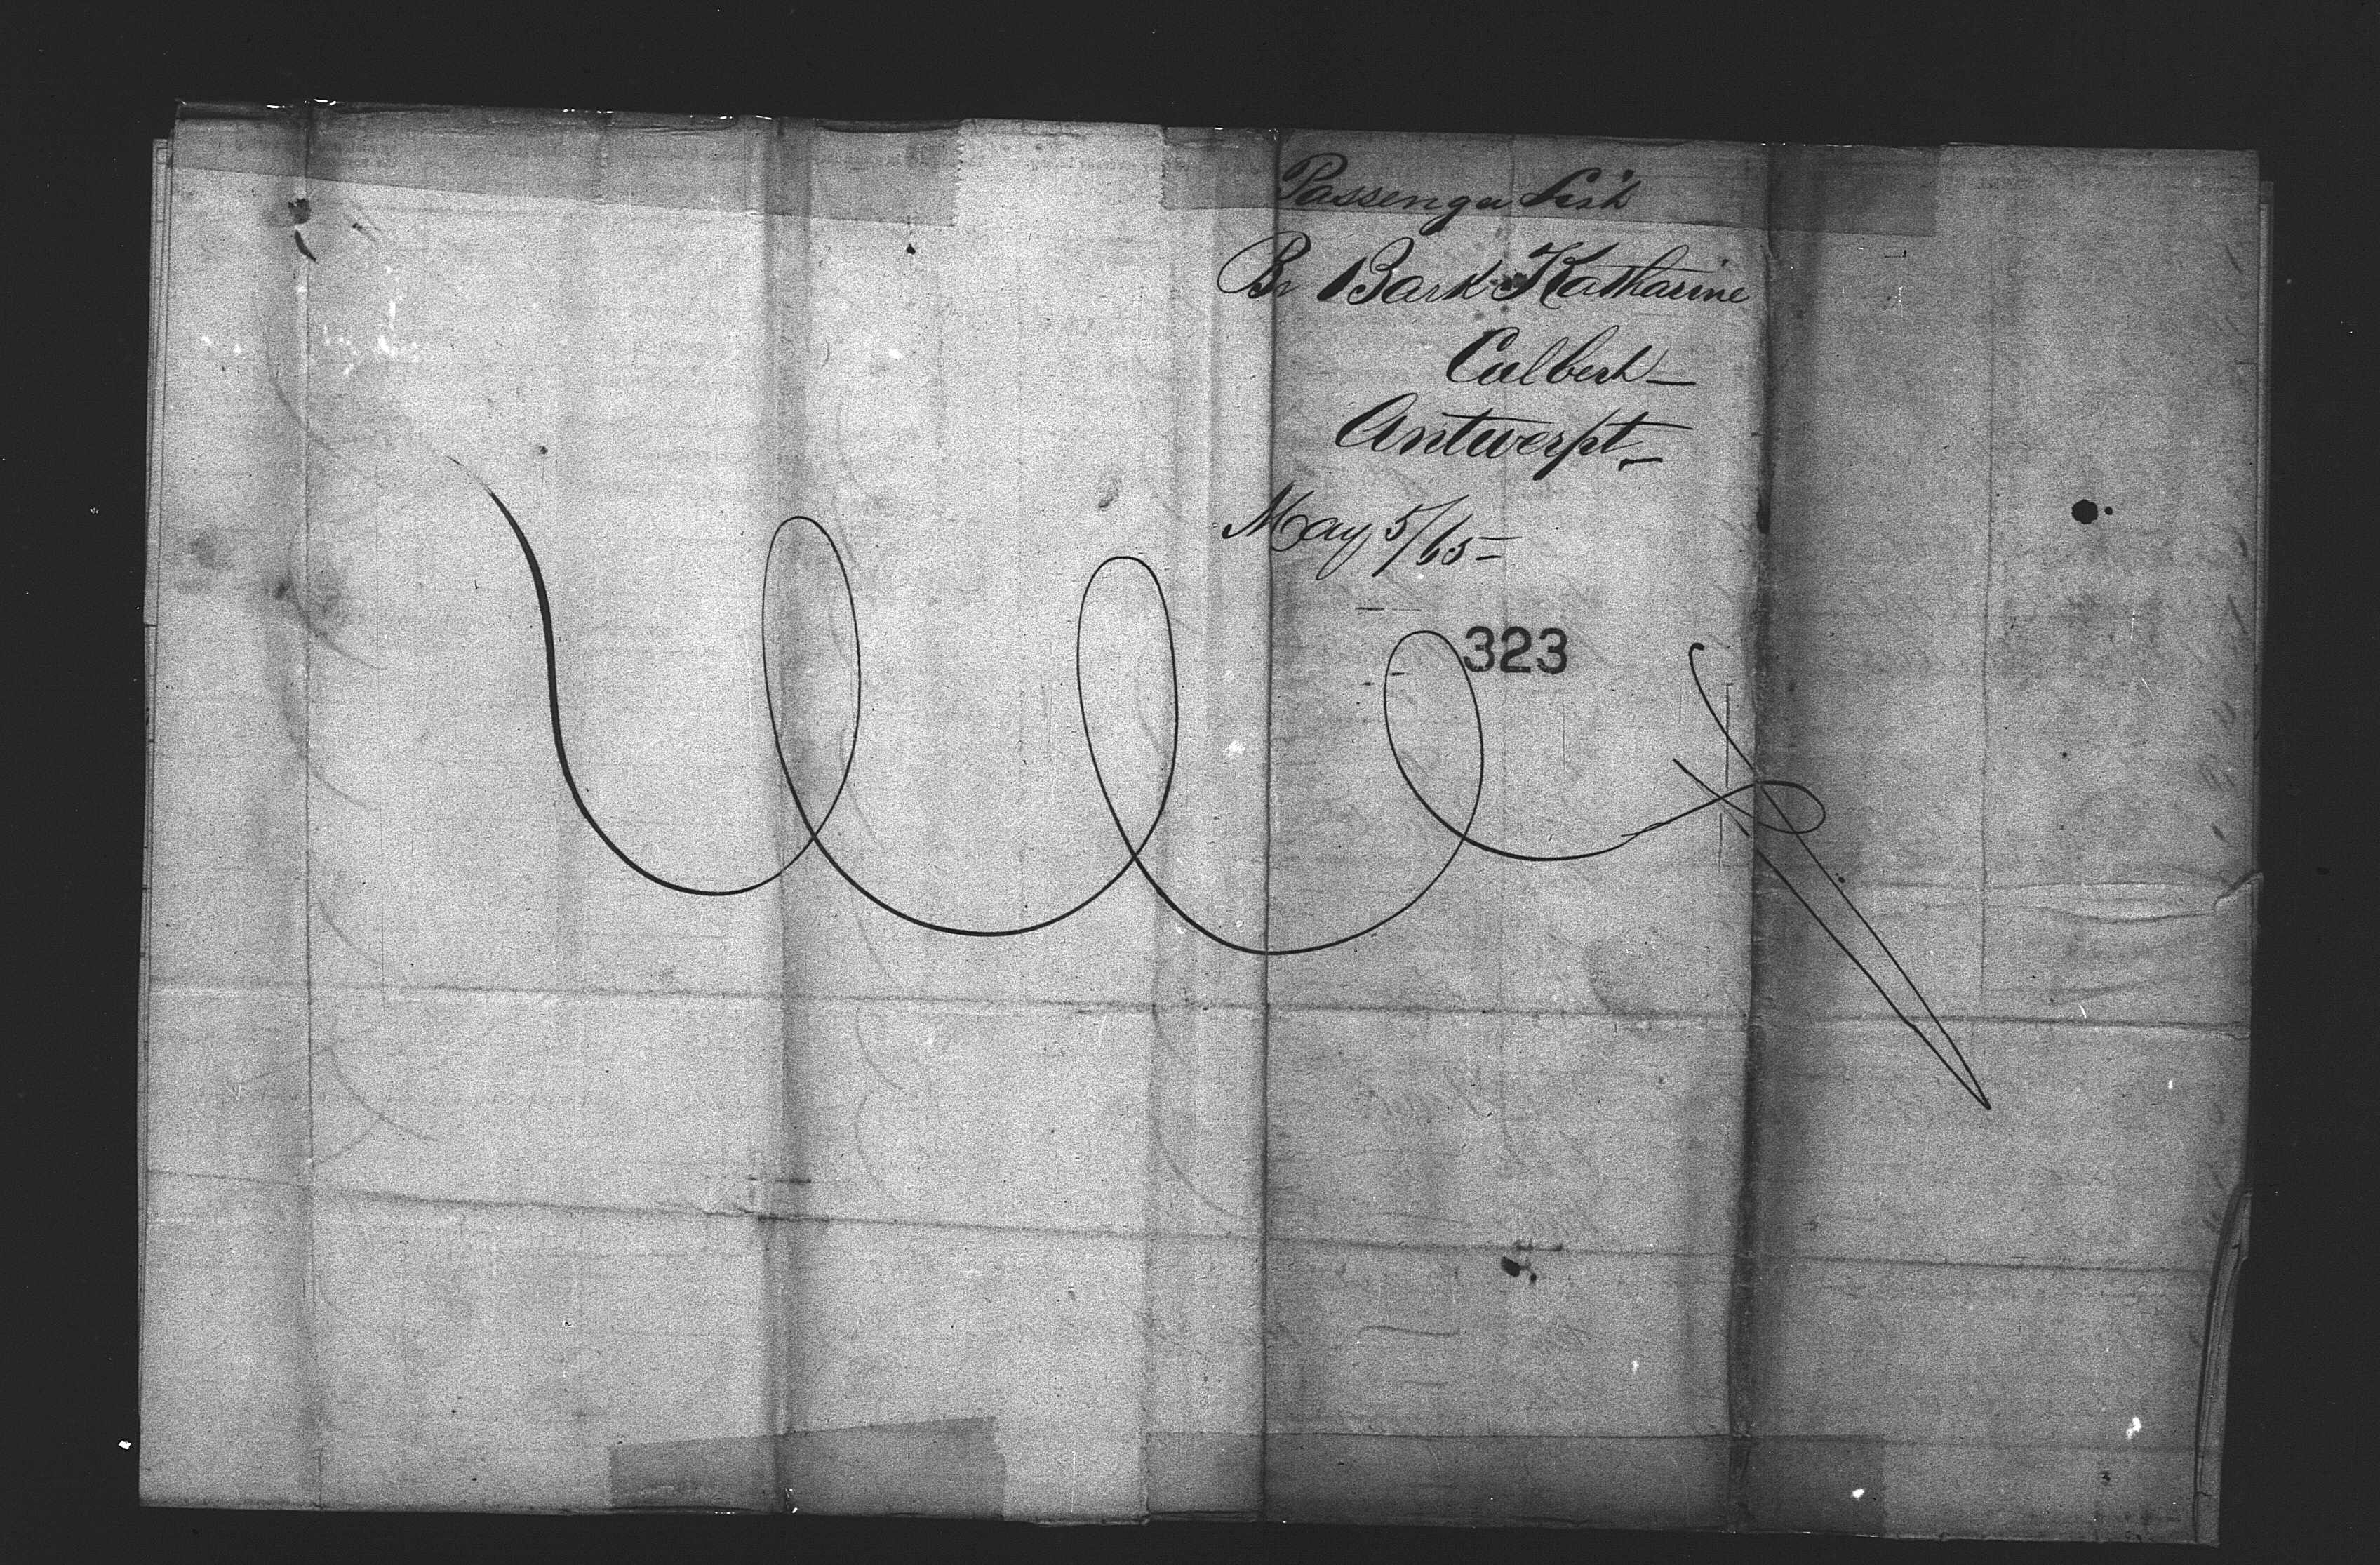 Passenger List
Br Bark Katharine
Culbert—
Antwerpt—
May 5/65=
323